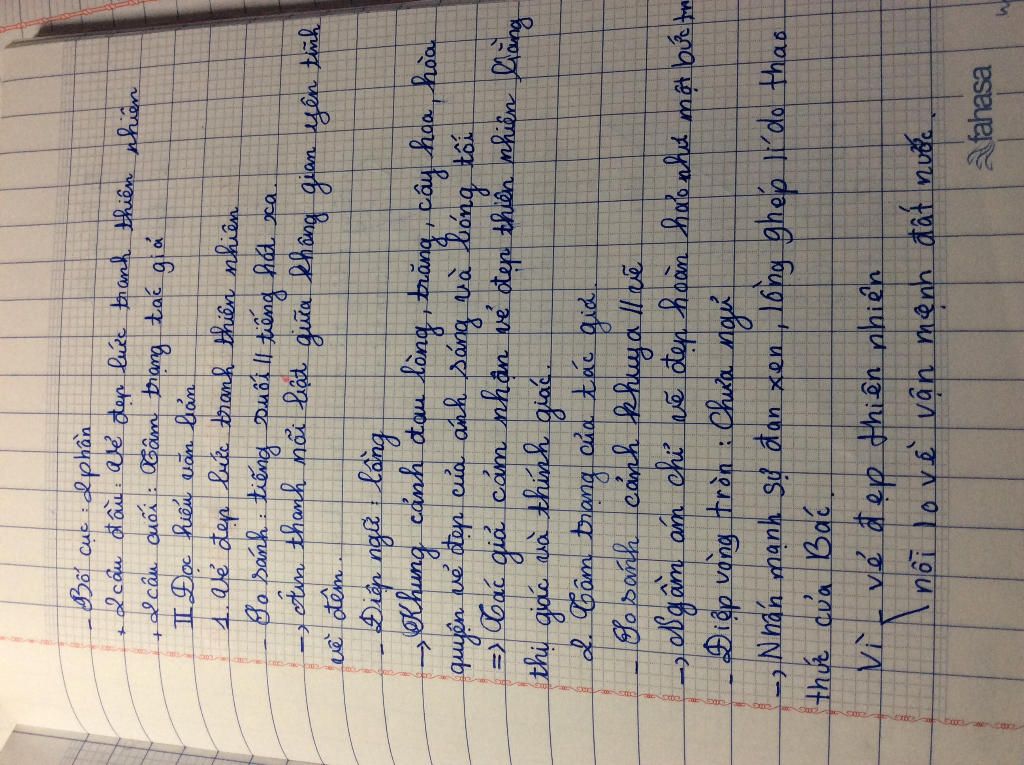 - Bố cục: 2 phần
+ 2 câu đầu: Vẻ đẹp bức tranh thiên nhiên
+ 2 câu cuối: Tâm trạng tác giả
II Đọc hiểu văn bản
1. Vẻ đẹp bức tranh thiên nhiên
- So sánh: tiếng suối // tiếng hát xa
→ Âm thanh nổi bật giữa không gian yên tĩnh
về đêm..
- Điệp ngữ: lồng
→ Khung cảnh đan lồng, trăng, cây hoa, hòa
quyện vẻ đẹp của ánh sáng và bóng tối
=> Tác giả cảm nhận vẻ đẹp thiên nhiên bằng
thị giác và thính giác.
2. Tâm trạng của tác giả.
- So sánh cảnh khuya // vẽ
→ Ngầm ám chỉ vẻ đẹp hoàn hảo như một bức
- Điệp vòng tròn: Chưa ngủ
→ Nhấn mạnh sự đan xen, lồng ghép lí do thao
thức của Bác.
Vì vẻ đẹp thiên nhiên
nỗi lo về vận mệnh đất nước.
fahasa